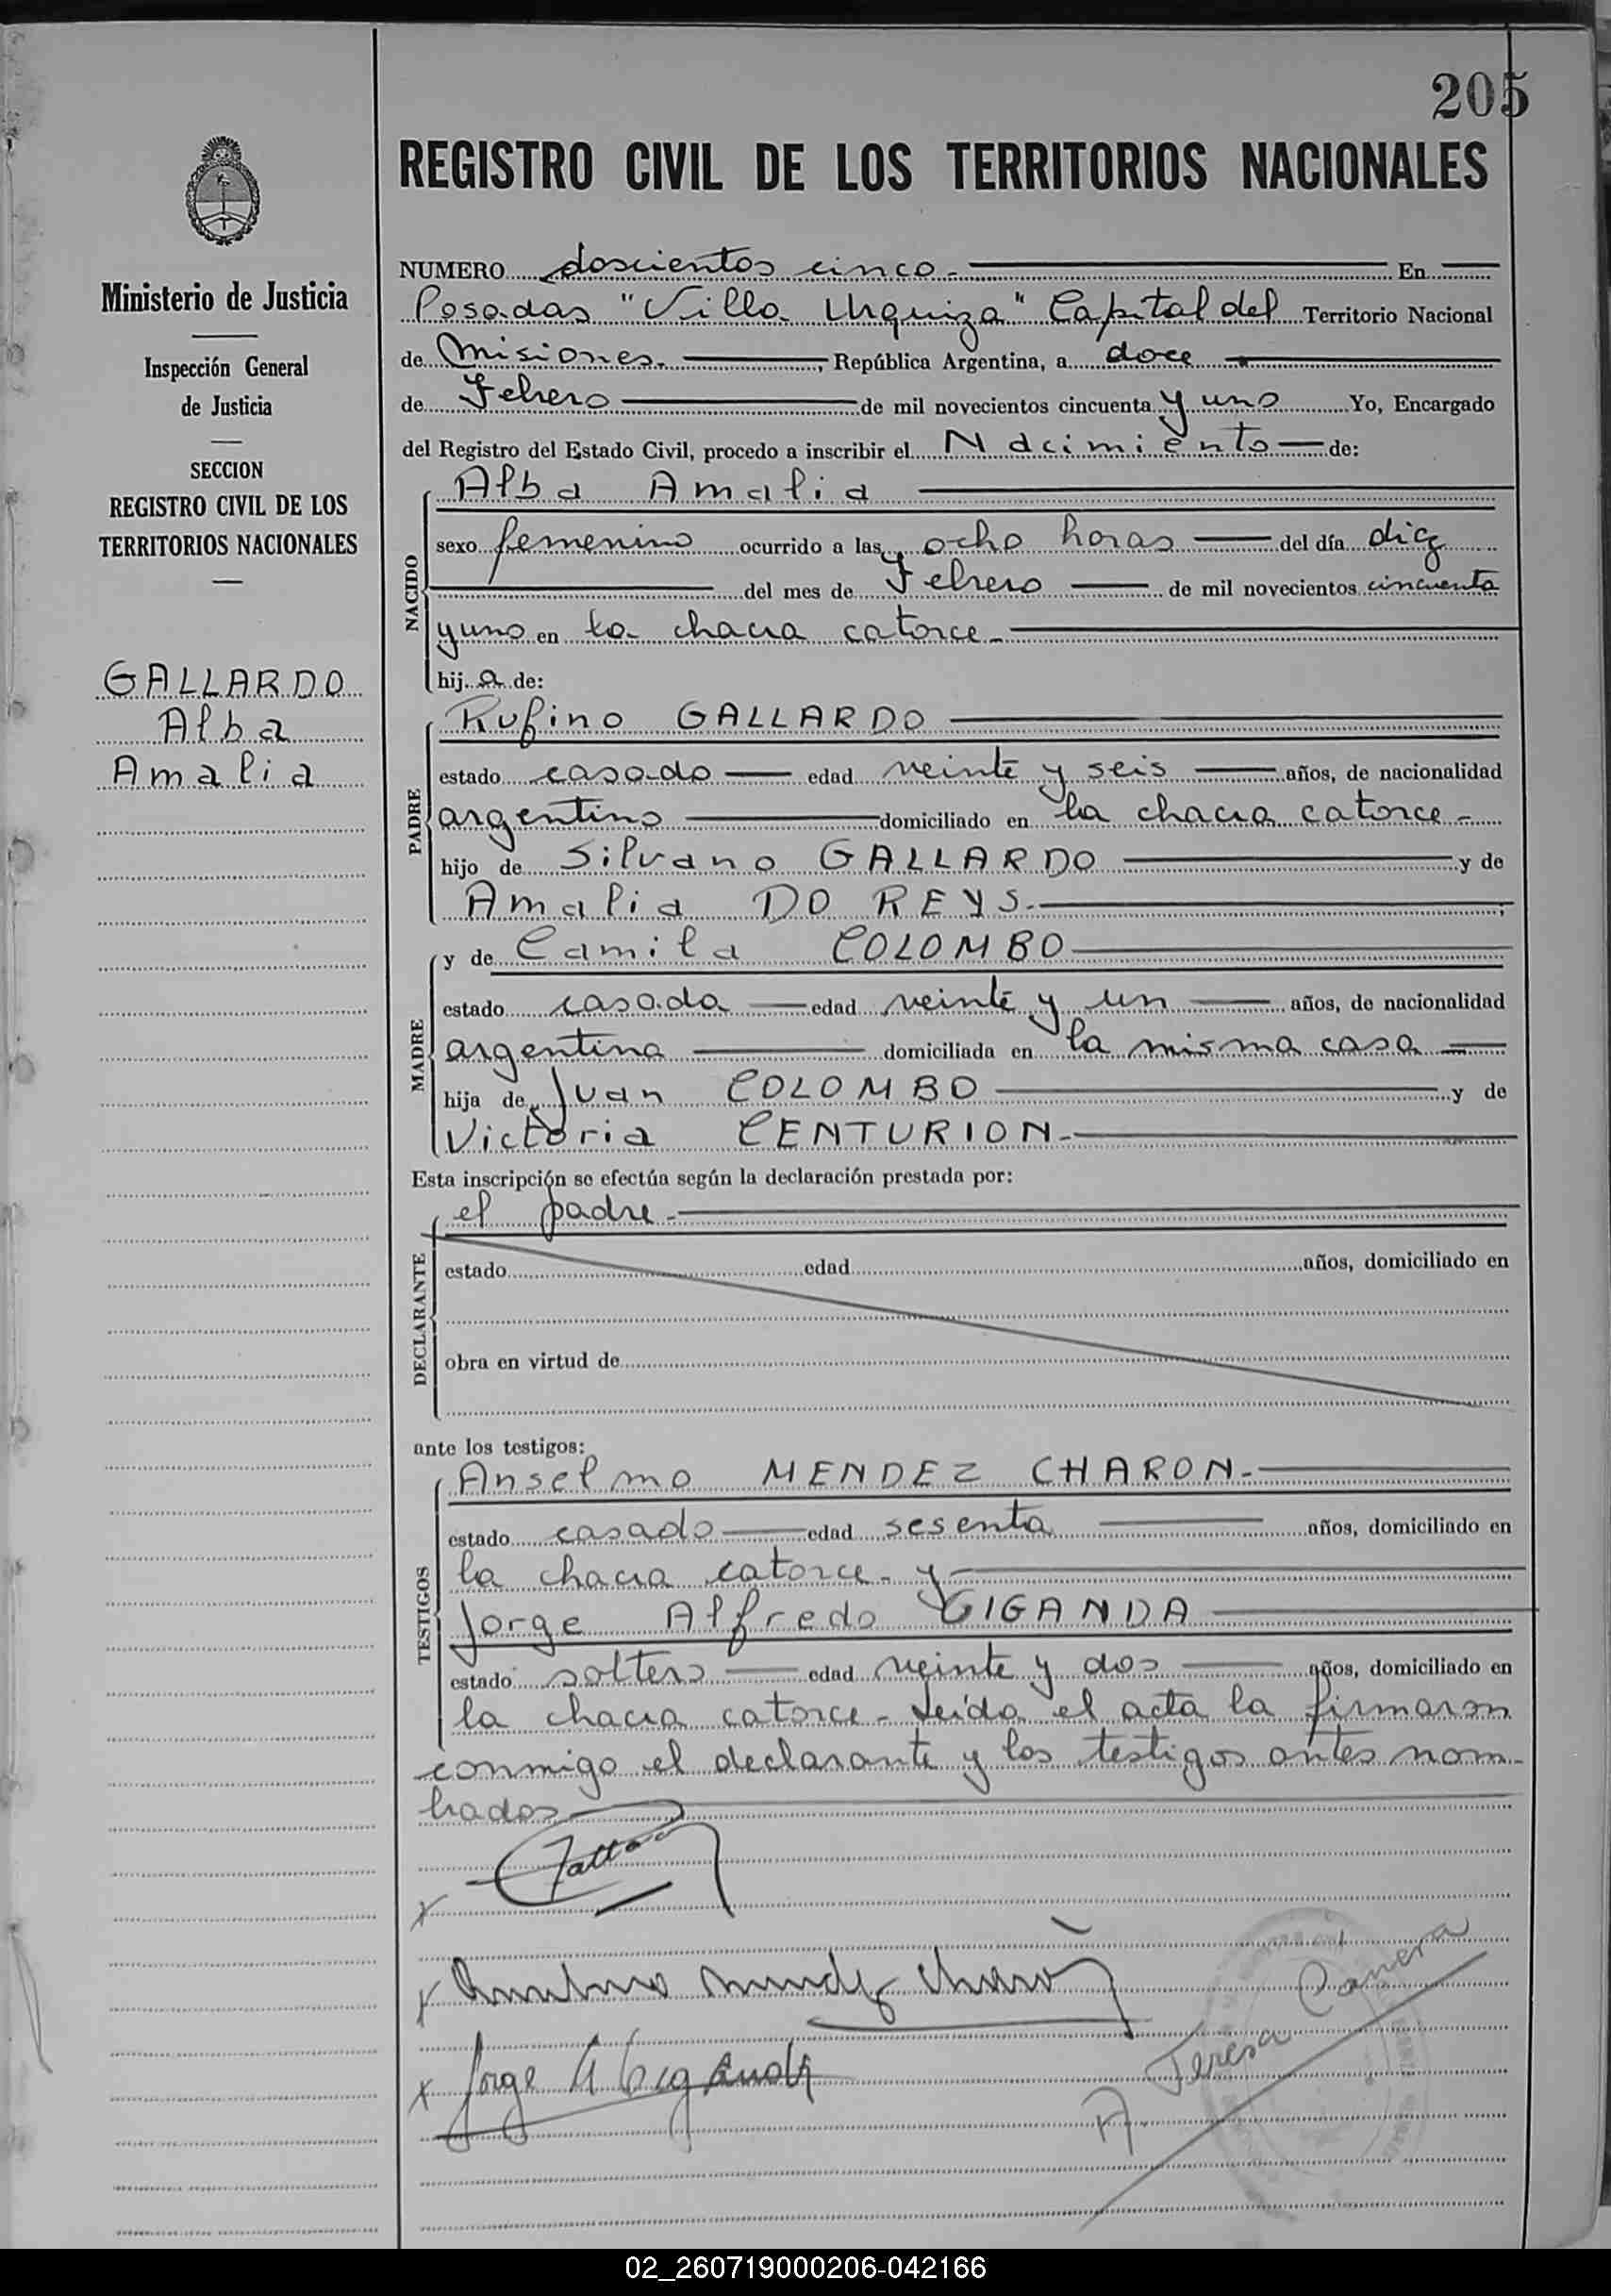 205
REGISTRO CIVIL DE LOS TERRITORIOS NACIONALES
Ministerio de Justicia
Inspección General
de Justicia
SECCION
REGISTRO CIVIL DE LOS
TERRITORIOS NACIONALES
GALLARDO
Alba
Amalia
NUMERO doscientos cinco.- En
Posadas "Villa Urquiza" Capital del Territorio Nacional
de Misiones. , República Argentina, a doce
de Febrero de mil novecientos cincuenta y uno Yo, Encargado
del Registro del Estado Civil, procedo a inscribir el Nacimiento de:
NACIDO
Alba Amalia
sexo femenino ocurrido a las ocho horas del día diez
del mes de Febrero de mil novecientos cincuenta
y uno en la chacra catorce.-
hija de:
PADRE
Rufino GALLARDO
estado casado edad veinte y seis años, de nacionalidad
argentino domiciliado en la chacra catorce.-
hijo de Silvano GALLARDO y de
Amalia DO REYS.-
MADRE
y de Camila COLOMBO
estado casada edad veinte y un años, de nacionalidad
argentina domiciliada en la misma casa
hija de Juan COLOMBO y de
Victoria CENTURION.-
Esta inscripción se efectúa según la declaración prestada por:
DECLARANTE
el padre.-
estado edad años, domiciliado en
obra en virtud de
ante los testigos:
TESTIGOS
Anselmo MENDEZ CHARON.-
estado casado edad sesenta años, domiciliado en
la chacra catorce.- y
Jorge Alfredo GIGANDA
estado soltero edad veinte y dos años, domiciliado en
la chacra catorce.- Leída el acta la firmaron
conmigo el declarante y los testigos antes nom-
brados
Anselmo Mendez Charon
Jorge A Giganda
A. Teresa Canera
02_260719000206-042166